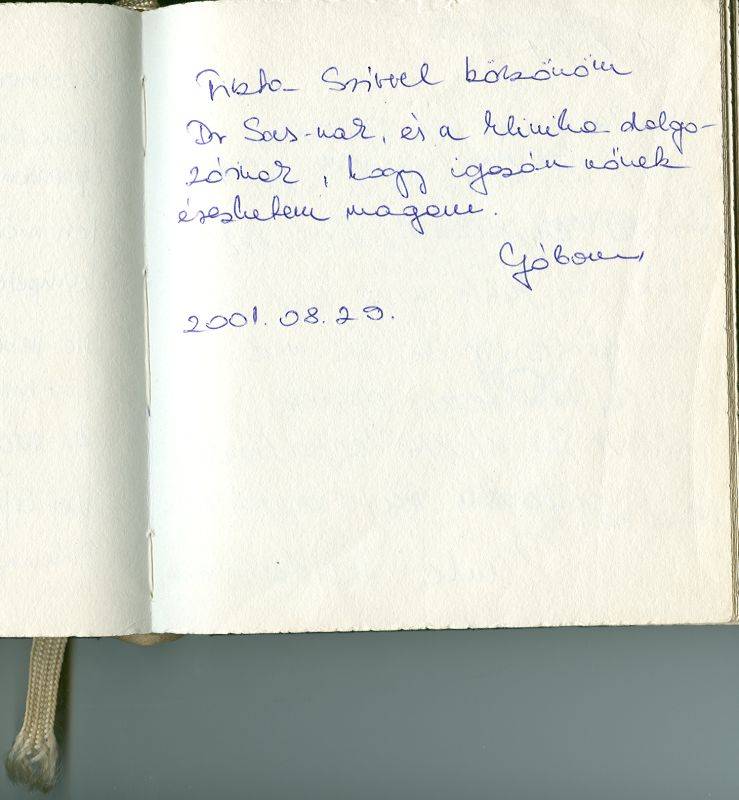 Tiszta Szívvel köszönöm
Dr Sas-nak, és a klinika dolgo-
zóinak, hogy igazán nőnek
érezhetem magam.
2001. 08. 29.